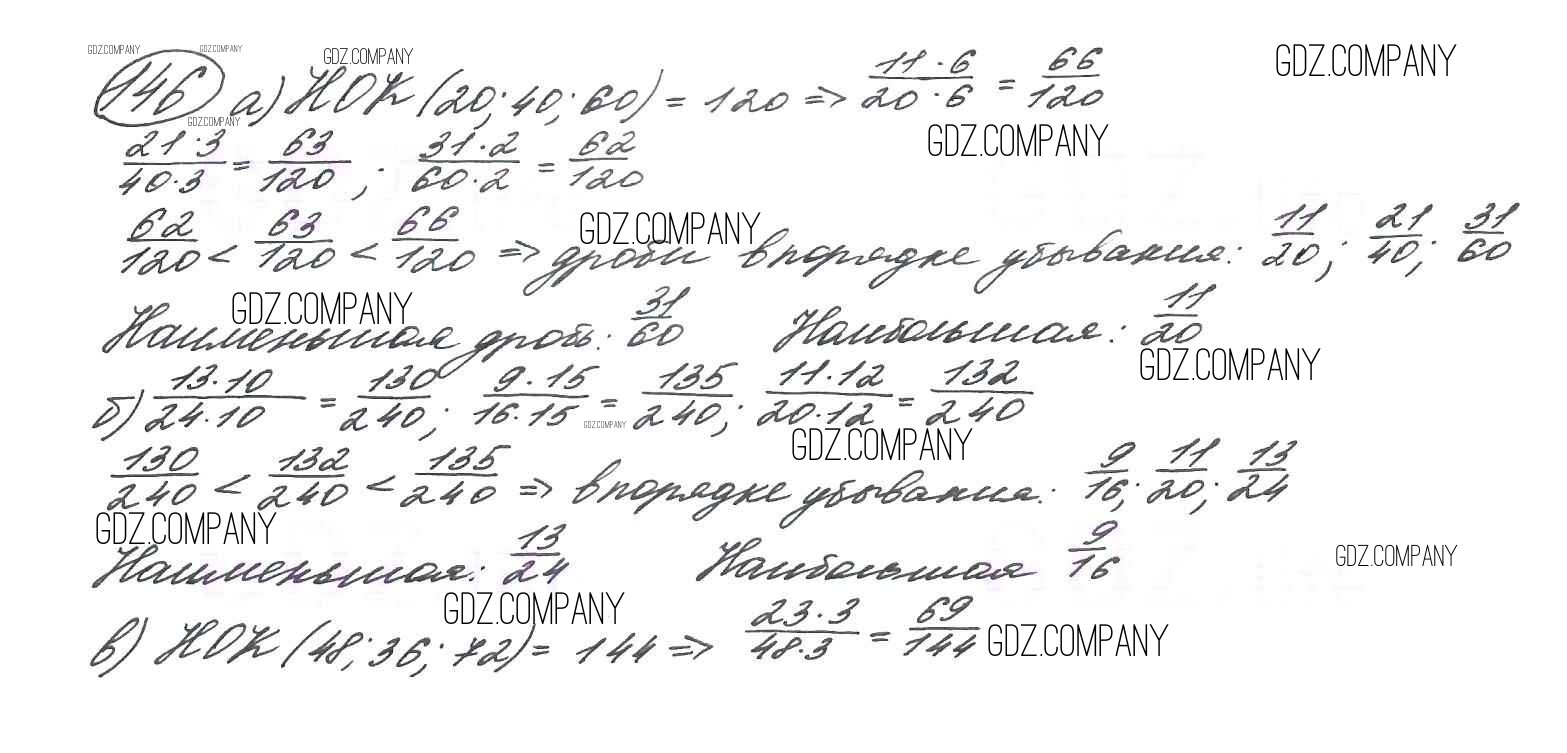 GDZ.COMPANY GDZ.COMPANY GDZ.COMPANY GDZ.COMPANY
146 а) НОК (20; 40; 60) = 120 => 11·6/20·6 = 66/120
GDZ.COMPANY GDZ.COMPANY
21·3/40·3 = 63/120; 31·2/60·2 = 62/120
GDZ.COMPANY
62/120 < 63/120 < 66/120 => дроби в порядке убывания: 11/20; 21/40; 31/60
GDZ.COMPANY
Наименьшая дробь: 31/60 Наибольшая: 11/20
GDZ.COMPANY
б) 13·10/24·10 = 130/240; 9·15/16·15 = 135/240; 11·12/20·12 = 132/240
GDZ.COMPANY GDZ.COMPANY
130/240 < 132/240 < 135/240 => в порядке убывания: 9/16; 11/20; 13/24
GDZ.COMPANY
Наименьшая: 13/24 Наибольшая 9/16
GDZ.COMPANY GDZ.COMPANY
в) НОК (48; 36; 72) = 144 => 23·3/48·3 = 69/144
GDZ.COMPANY